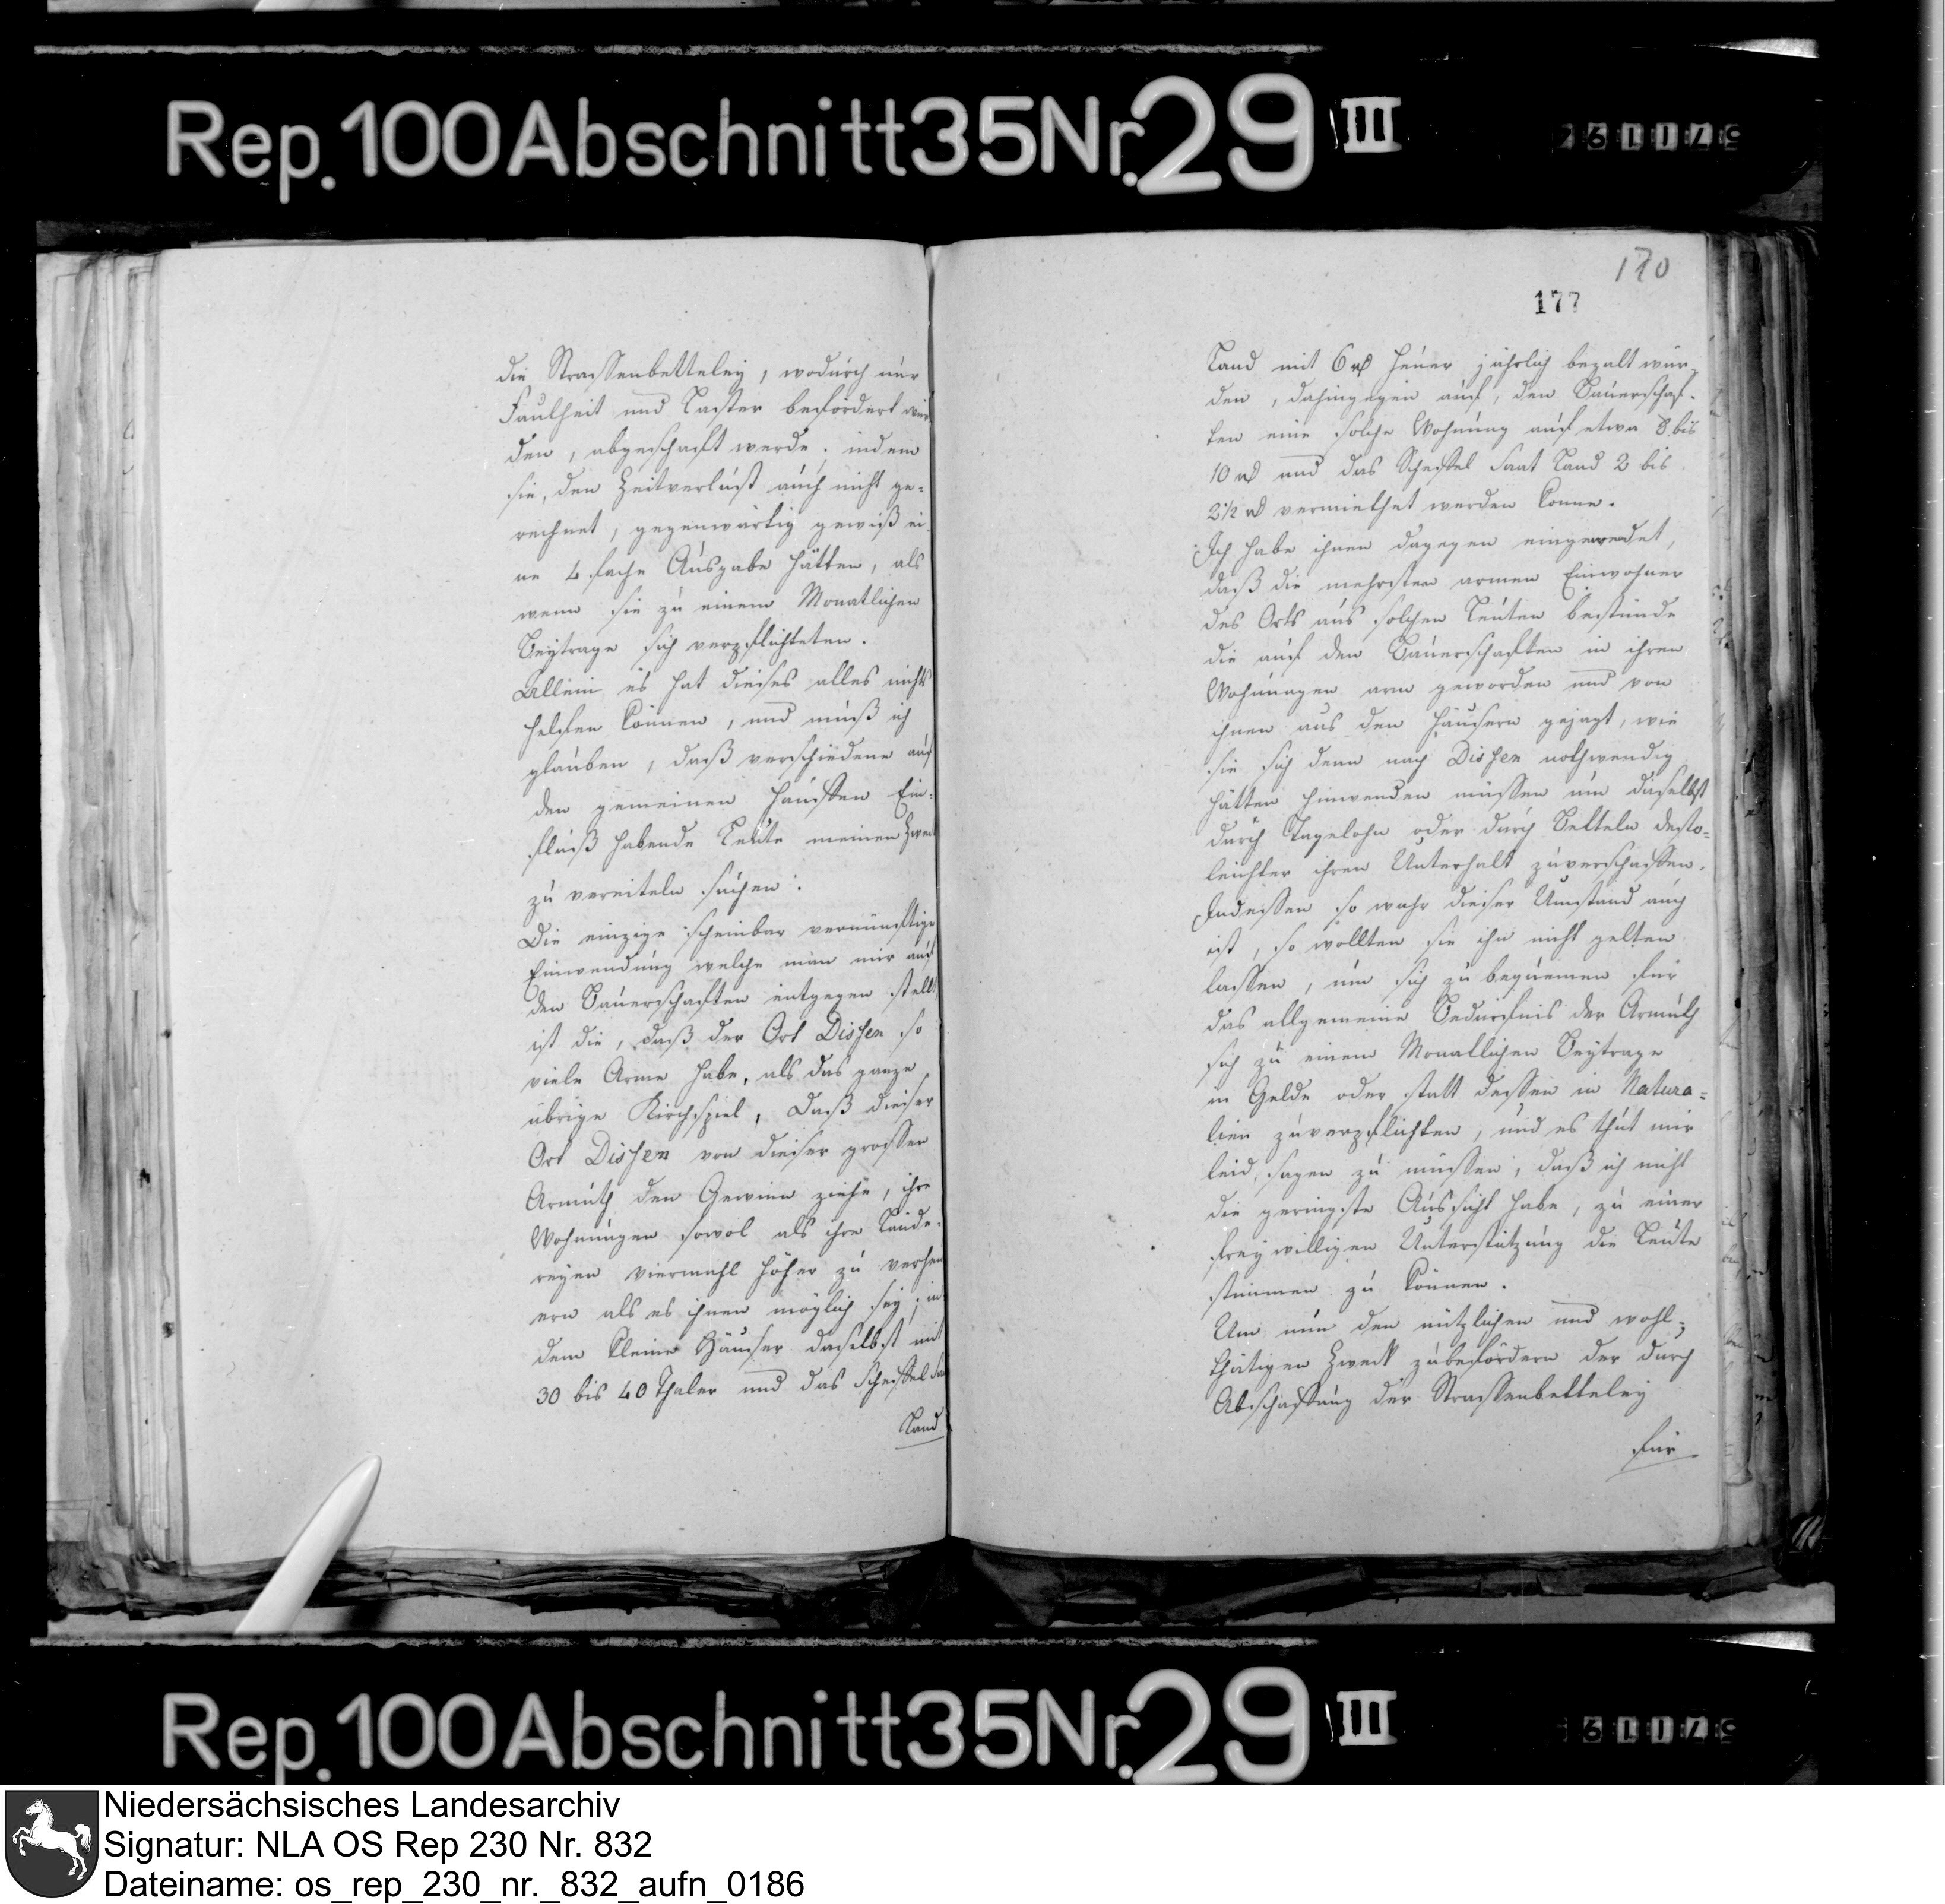 Rep. 100 Abschnitt 35 Nr. 29 III
die Strassenbetteley, wodurch nur
Faulheit und Laster befördert wür
den, abgeschaft werde. indem
sie, den Zeitverlust auch nicht ge-
rechnet, gegenwärtig gewiß ei
ne 4 fache Ausgabe hätten, als
wenn sie zu einem Monatlichen
Beytrage sich verpflichteten.
Allein es hat dieses alles nichts
helfen können, und muß ich
glauben, daß verschiedene auf
den gemeinen Haufen Ein-
fluß habende Leute meinen Zweck
zu vereiteln suchen.
Die einzige scheinbar vernünftige
Einwendung welche man mir aus
den Bauerschaften entgegen stellt
ist die, daß der Ort Dissen so
viele Arme habe, als das ganze
übrige Kirchspiel, Daß dieser
Ort Dissen von dieser grossen
Armuth den Gewinn ziehe, ihre
Wohnungen sowol als ihre Lände-
reyen viermahl höher zu verheu
ern als es ihnen möglich sey; in
dem kleine Häuser daselbst mit
30 bis 40 Thaler und das Scheffel Saat
Land
170
177
Land mit 6 rℓ Heuer jährlich bezalt wür-
den, dahingegen auf, den Bauerschaf-
ten eine solche Wohnung auf etwa 8 bis
10 rℓ und das Scheffel Saat Land 2 bis
2 1/2 rℓ vermiethet werden könne.
Ich habe ihnen dagegen eingewendet,
daß die mehrsten armen Einwohner
des Orts aus solchen Leuten bestünde
die auf den Bauerschaften in ihren
Wohnungen arm geworden und von
ihnen aus den Häusern gejagt, wie
sie sich denn nach Dissen nothwendig
hätten hinwenden müssen um daselbst
durch Tagelohn oder durch Betteln desto-
leichter ihren Unterhalt zuverschaffen.
Indessen so wahr dieser Umstand auch
ist, so wollten sie ihn nicht gelten
lassen, um sich zu bequemen für
das allgemeine Bedürfnis der Armuth
sich zu einem Monatlichen Beytrage
in Gelde oder statt dessen in Natura-
lien zuverpflichten, und es thut mir
leid, sagen zu müssen, daß ich nicht
die geringste Aussicht habe, zu einer
freywilligen Unterstützung die Leute
stimmen zu können.
Um nun den nützlichen und wohl-
thätigen Zweck zubefördern der durch
Abschaffung der Strassenbetteley
für
Rep. 100 Abschnitt 35 Nr. 29 III
Niedersächsisches Landesarchiv
Signatur: NLA OS Rep 230 Nr. 832
Dateiname: os_rep_230_nr._832_aufn_0186